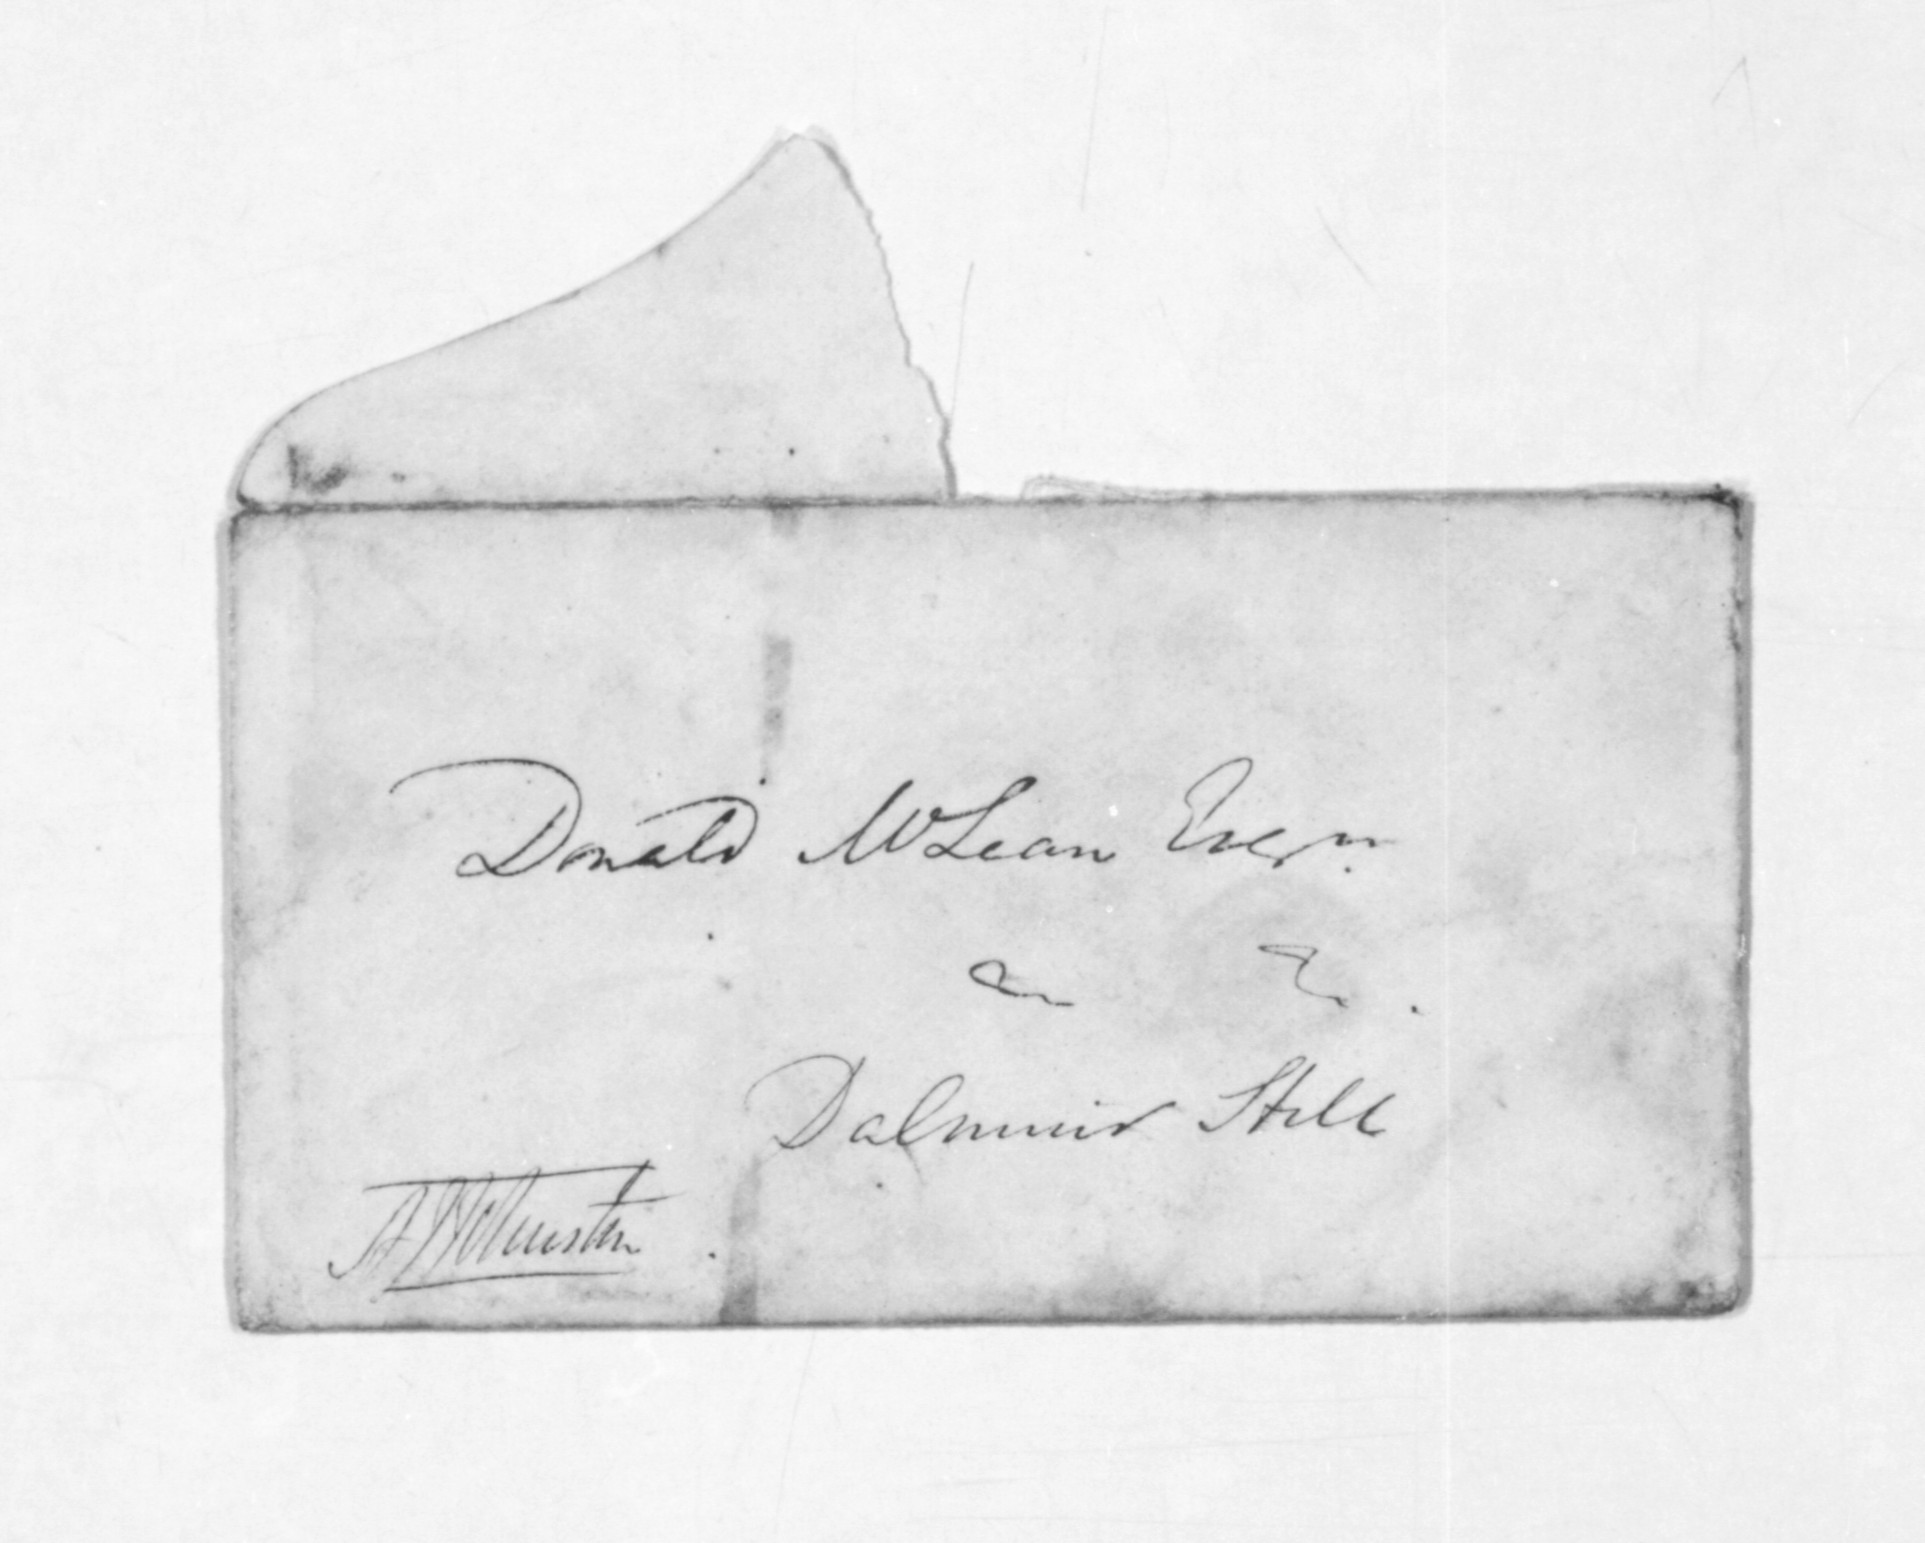 Donald McLean Esqr.
Dalmuir Hill